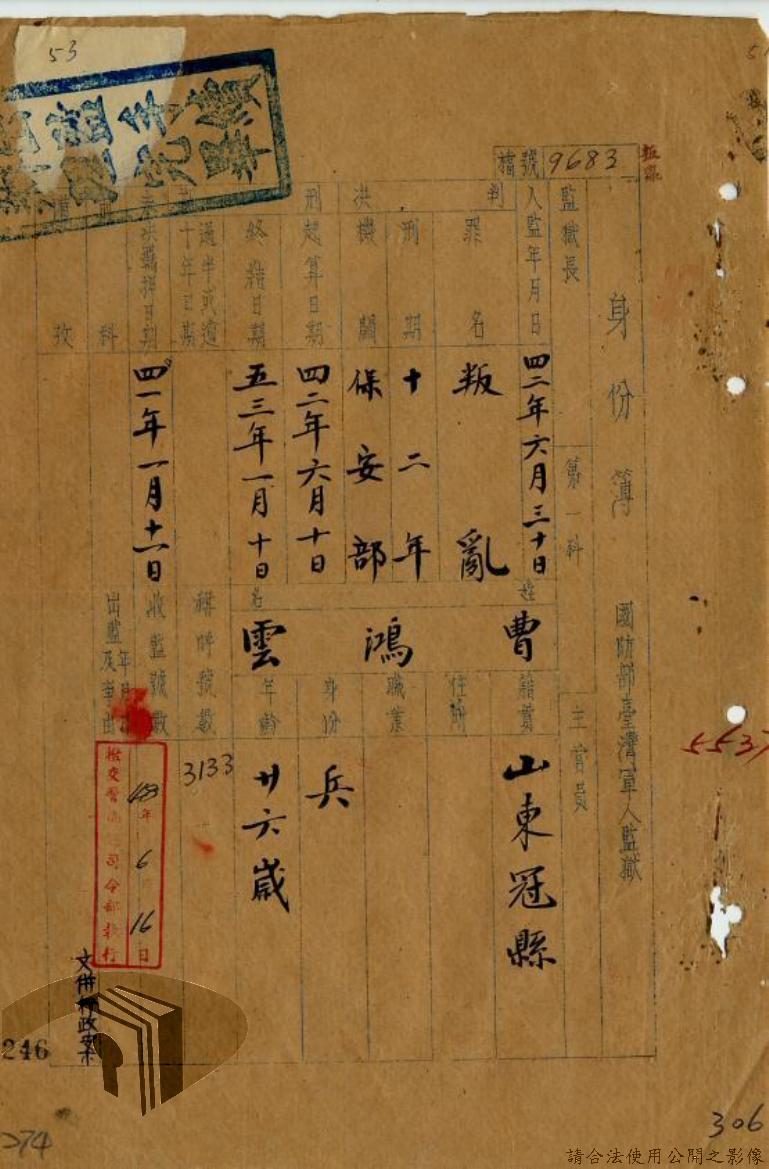 53
檔號 9683
身份簿
國防部臺灣軍人監獄
監獄長
第一科
主官員
入監年月日
四二年六月三十日
判決
罪名
叛亂
刑期
十二年
機關
保安部
刑起算日期
四二年六月十日
終結日期
五三年一月十日
過半或逾十年日期
四一年一月十一日
姓名
曹鴻雲
籍貫
山東冠縣
住所
職業
身份
兵
年齡
廿六歲
稱呼號數
3133
收監號數
出監年月日及事由
48年6月16日
文併行政案
5537
246
274
306
請合法使用公開之影像